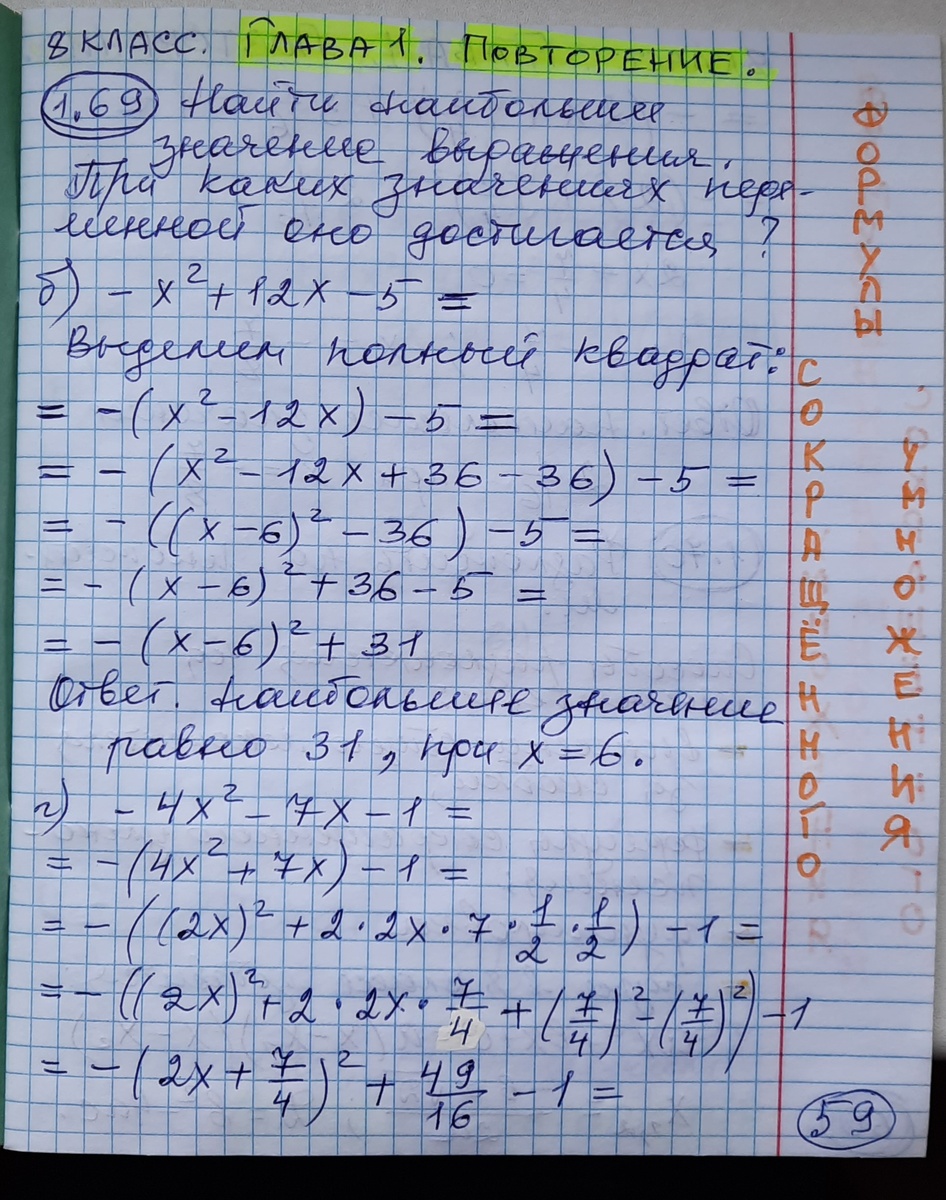 8 КЛАСС. ГЛАВА 1. ПОВТОРЕНИЕ.
1.69 Найти наибольшее
значение выражения.
При каких значениях пере-
менной оно достигается?
б) - x² + 12x - 5 =
Выделим полный квадрат:
= - (x² - 12x) - 5 =
= - (x² - 12x + 36 - 36) - 5 =
= - ((x - 6)² - 36) - 5 =
= - (x - 6)² + 36 - 5 =
= - (x - 6)² + 31
Ответ. Наибольшее значение
равно 31, при x = 6.
г) - 4x² - 7x - 1 =
= - (4x² + 7x) - 1 =
= - ((2x)² + 2 · 2x · 7 · 1/2 · 1/2) - 1 =
= - ((2x)² + 2 · 2x · 7/4 + (7/4)² - (7/4)²) - 1
= - (2x + 7/4)² + 49/16 - 1 =
59
ФОРМУЛЫ
СОКРАЩЁННОГО
УМНОЖЕНИЯ